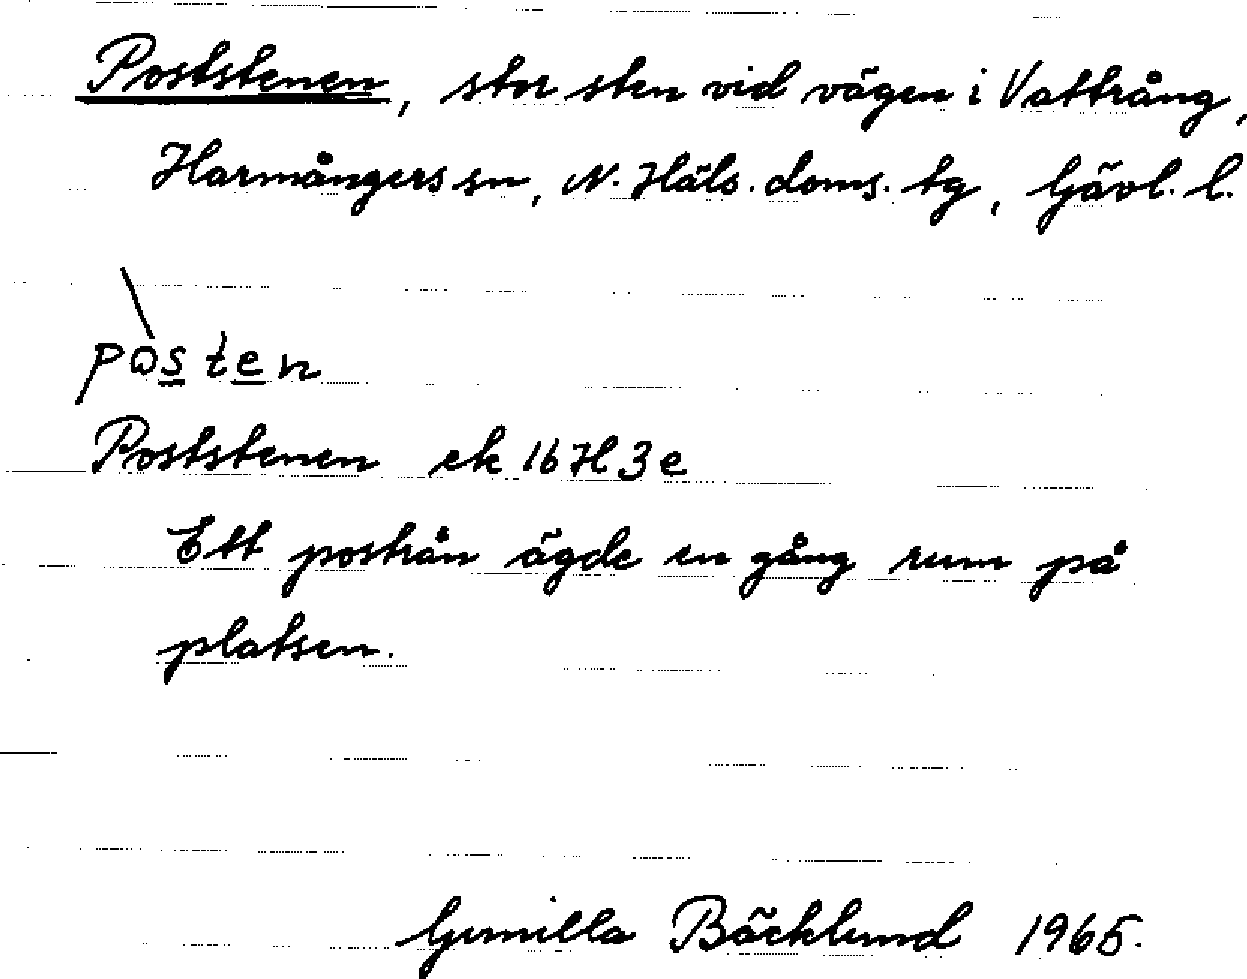 Poststenen, stor sten vid vägen i Vattrång,
Harmångers sn, N. Häls. doms. tg, Gävl. l.
pòsten
Poststenen ek 16 H 3 e
Ett postrån ägde en gång rum på
platsen.
Gunilla Bäcklund 1965.